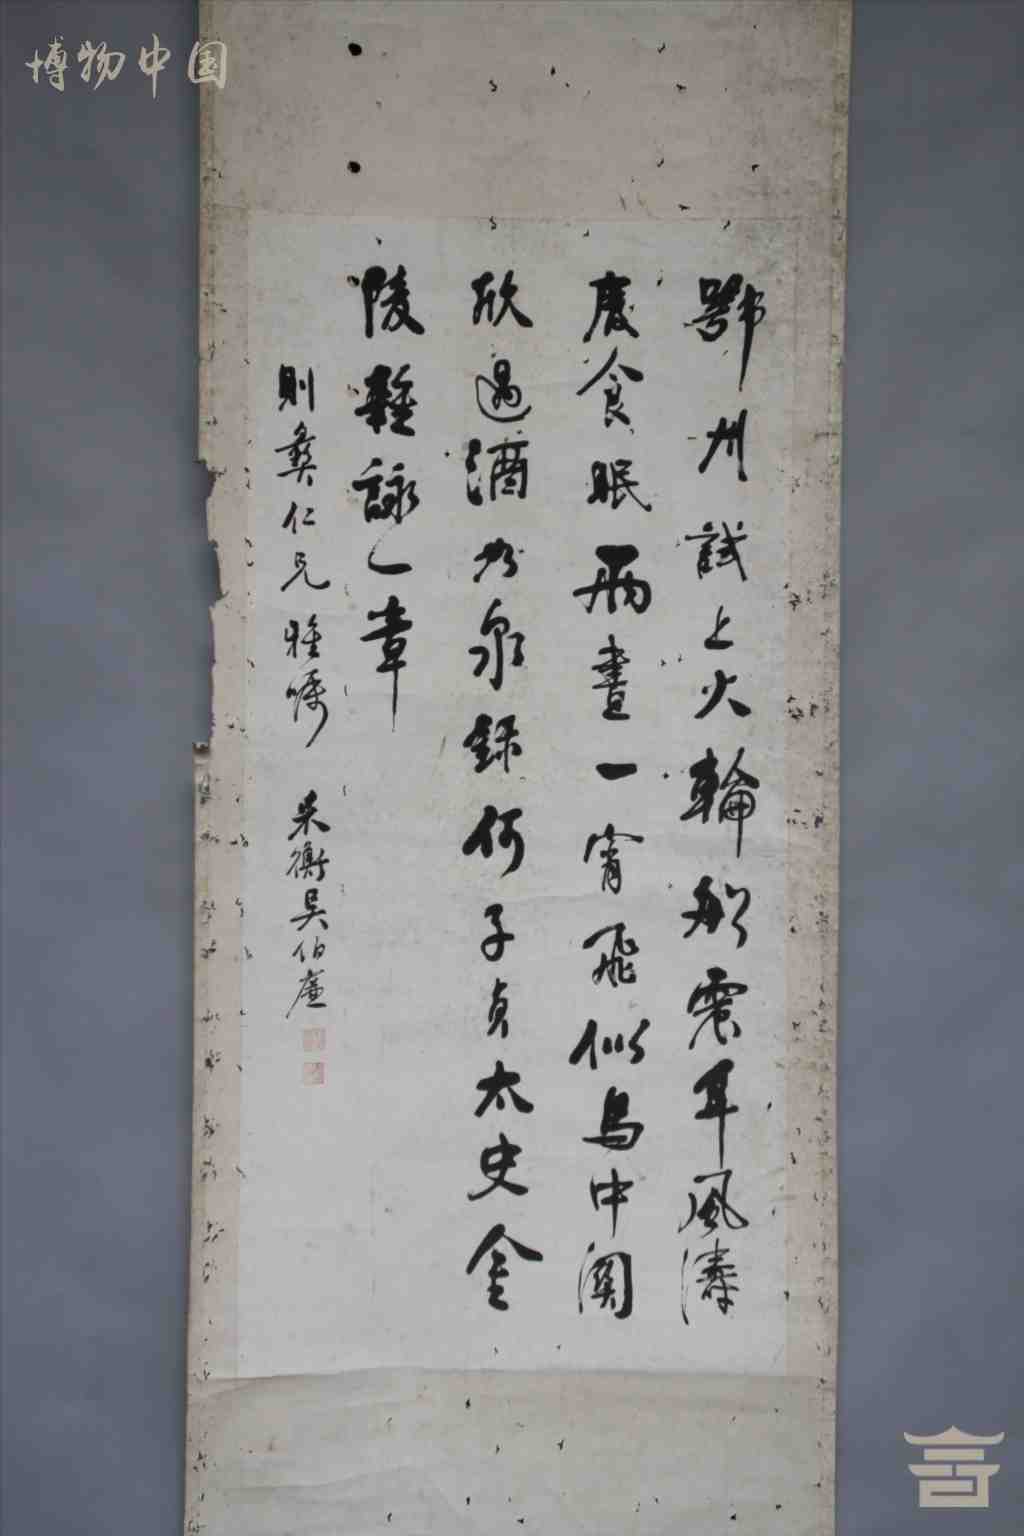 博物中国
鄂州試上火輪船震耳風濤
廢食眠兩晝一宵飛似鳥中閑
欣過酒如泉錄何子貞太史金
陵雜詠一章
則彝仁兄雅囑 吳伯庵